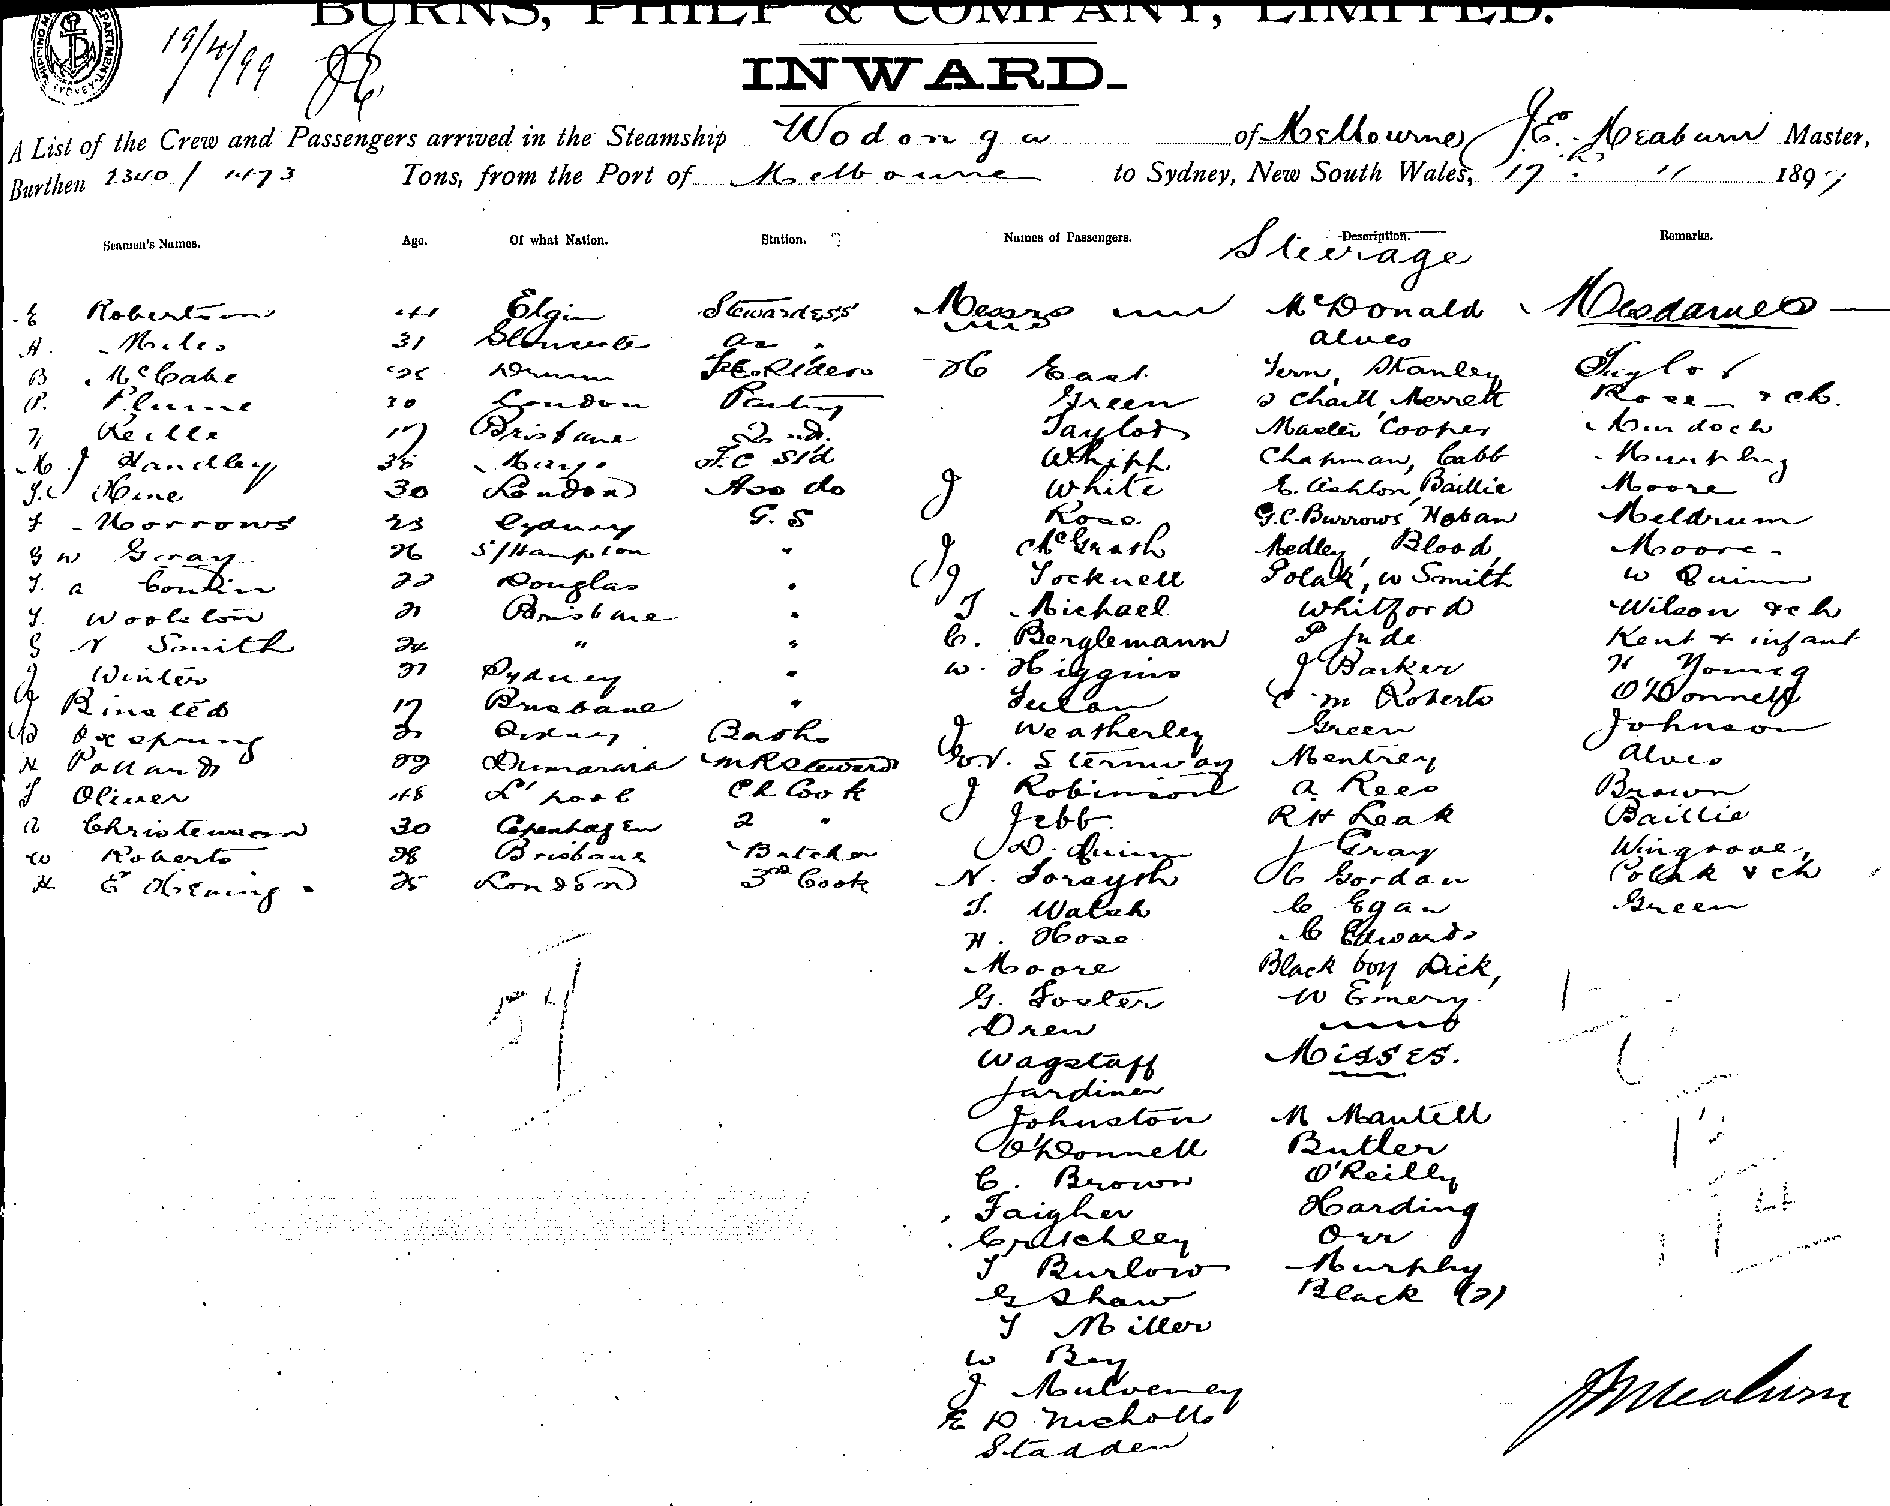 BURNS, PHILP & COMPANY, LIMITED.
19/4/99
INWARD.
A List of the Crew and Passengers arrived in the Steamship Wodonga of Melbourne, J.E. Meaburn Master,
Burthen 2340 / 1473 Tons, from the Port of Melbourne to Sydney, New South Wales, 17 " 189
Seamen's Names. Age. Of what Nation. Station. Names of Passengers. Description. Remarks.
Steerage
E Robertson 41 Elgin Stewardess Messrs McDonald Mesdames
A. Miles 31 Gloucester do Alves
B McCabe London H East Fern, Stanley Taylor
P. Plume 30 London Pantry Green Chaill, Merrett Rose & ch.
Reille 17 Brisbane 2nd. Taylor Master Cooper Murdoch
M J Handley 38 Mayo F.C Std Whipp Chapman, Cabb Murphy
Hine 30 London Ass do J White E. Ashton, Baillie Moore
F Morrows 23 Sydney G. S Rose G.C. Burrows, Hoban Meldrum
G W Gray 26 S/Hampton " J McGrath Medley, Blood, Moore
T. A Contin 22 Douglas " J Tocknell Polak, W Smith W Quinn
T. Woolston 21 Brisbane " T Michael Whitford Wilson & ch
G N Smith 24 " " C. Berglemann P Jude Kent & infant
J Winter 27 Sydney " W. Higgins J Barker H Young
J Binsted 17 Brisbane " C M Roberts O'Donnell
Oxspring 21 Sydney Baths J Weatherley Green Johnson
H Pollard 29 Demarara M R Steward Sternway Mentrey Alves
T Oliver 48 L'pool Ch Cook J Robinson A Rees Brown
A Christenson 30 Copenhagen 2 " Jebb R H Leak Baillie
W Roberts 28 Brisbane Butcher D. Quinn J Gray Wingrove,
H E Hrening 25 London 3rd Cook N. Forsyth C Gordon Polak & ch
T. Walsh C Egan Green
H. Hose C Edwards
Moore Black boy Dick,
G. Foster W Emery
Drew
Wagstaff Misses.
Jardiner
Johnston M Mantell
O'Donnell Butler
C. Brown O'Reilly
Faigher Harding
Critchley Orr
T Burlow Murphy
G Shaw Black (2)
T Miller
W Bey
J Mulveney
E D Nicholls
Stadden
J E Meaburn